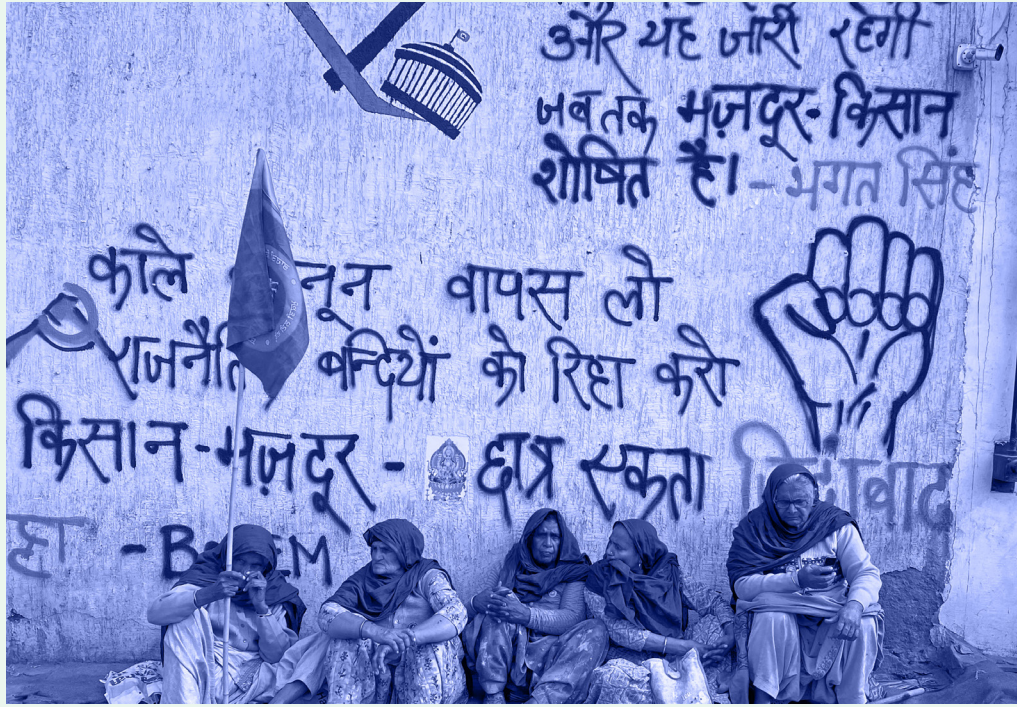 और यह जारी रहेगी
जब तक मज़दूर-किसान
शोषित है। - भगत सिंह
काले नून वापस लो
बन्दियों को रिहा करो
किसान-मज़दूर - छात्र एकता
हो -